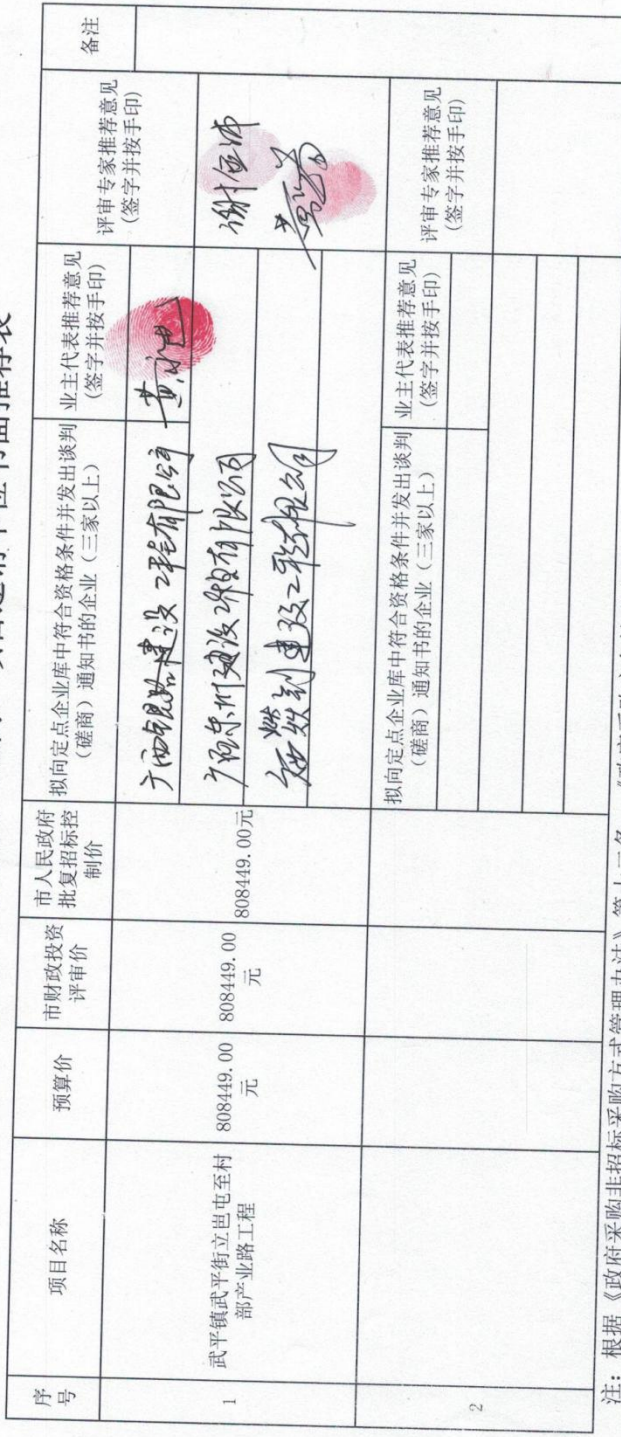 项目邀请单位书面推荐表
序号
项目名称
预算价
市财政投资
评审价
市人民政府
批复招标控
制价
拟向定点企业库中符合资格条件并发出谈判
（磋商）通知书的企业（三家以上）
业主代表推荐意见
(签字并按手印)
评审专家推荐意见
(签字并按手印)
备注
1
武平镇武平街立岜屯至村
部产业路工程
808449.00
元
808449.00
元
808449.00元
建设工程有限公司
建设工程有限公司
建设工程有限公司
2
拟向定点企业库中符合资格条件并发出谈判
（磋商）通知书的企业（三家以上）
业主代表推荐意见
(签字并按手印)
评审专家推荐意见
(签字并按手印)
注：根据《政府采购非招标采购方式管理办法》第十二条